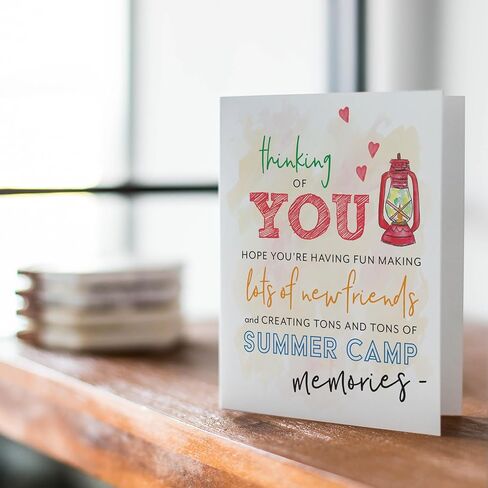 thinking
OF
YOU
HOPE YOU'RE HAVING FUN MAKING
lots of new friends
and CREATING TONS AND TONS OF
SUMMER CAMP
memories -